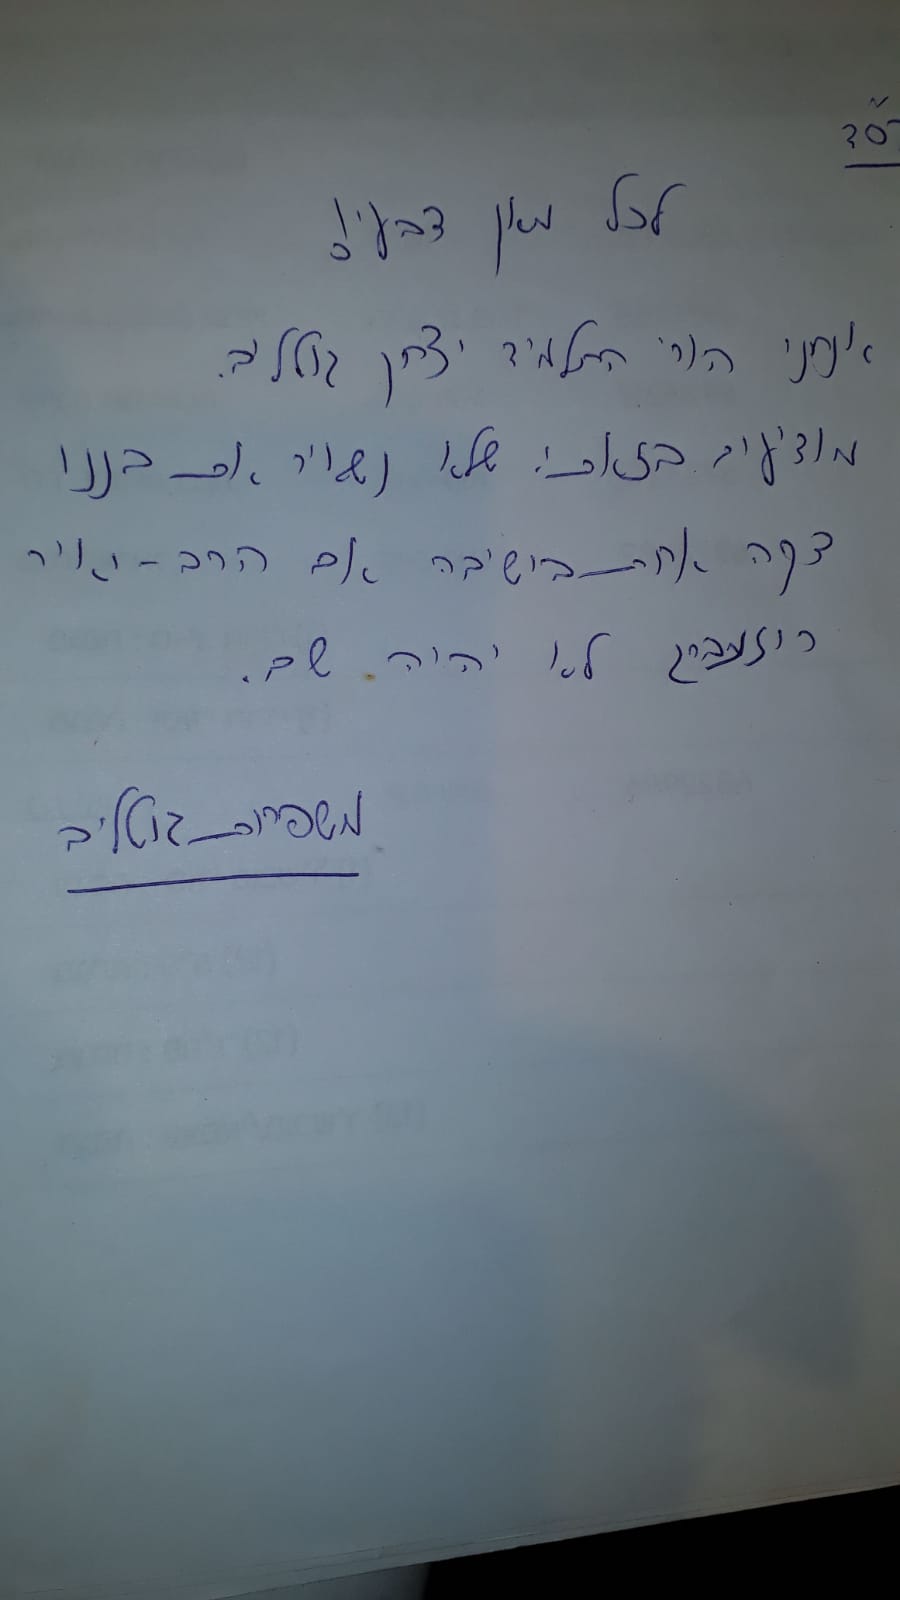 בס"ד
לכל מאן דבעי!
אנחנו הורי התלמיד יצחק גוטליב.
מודיעים בזאת: שלא נשאיר את בננו
דקה אחת בישיבה אם הרב - מאיר
רוזנברג לא יהיה שם.
משפחת גוטליב